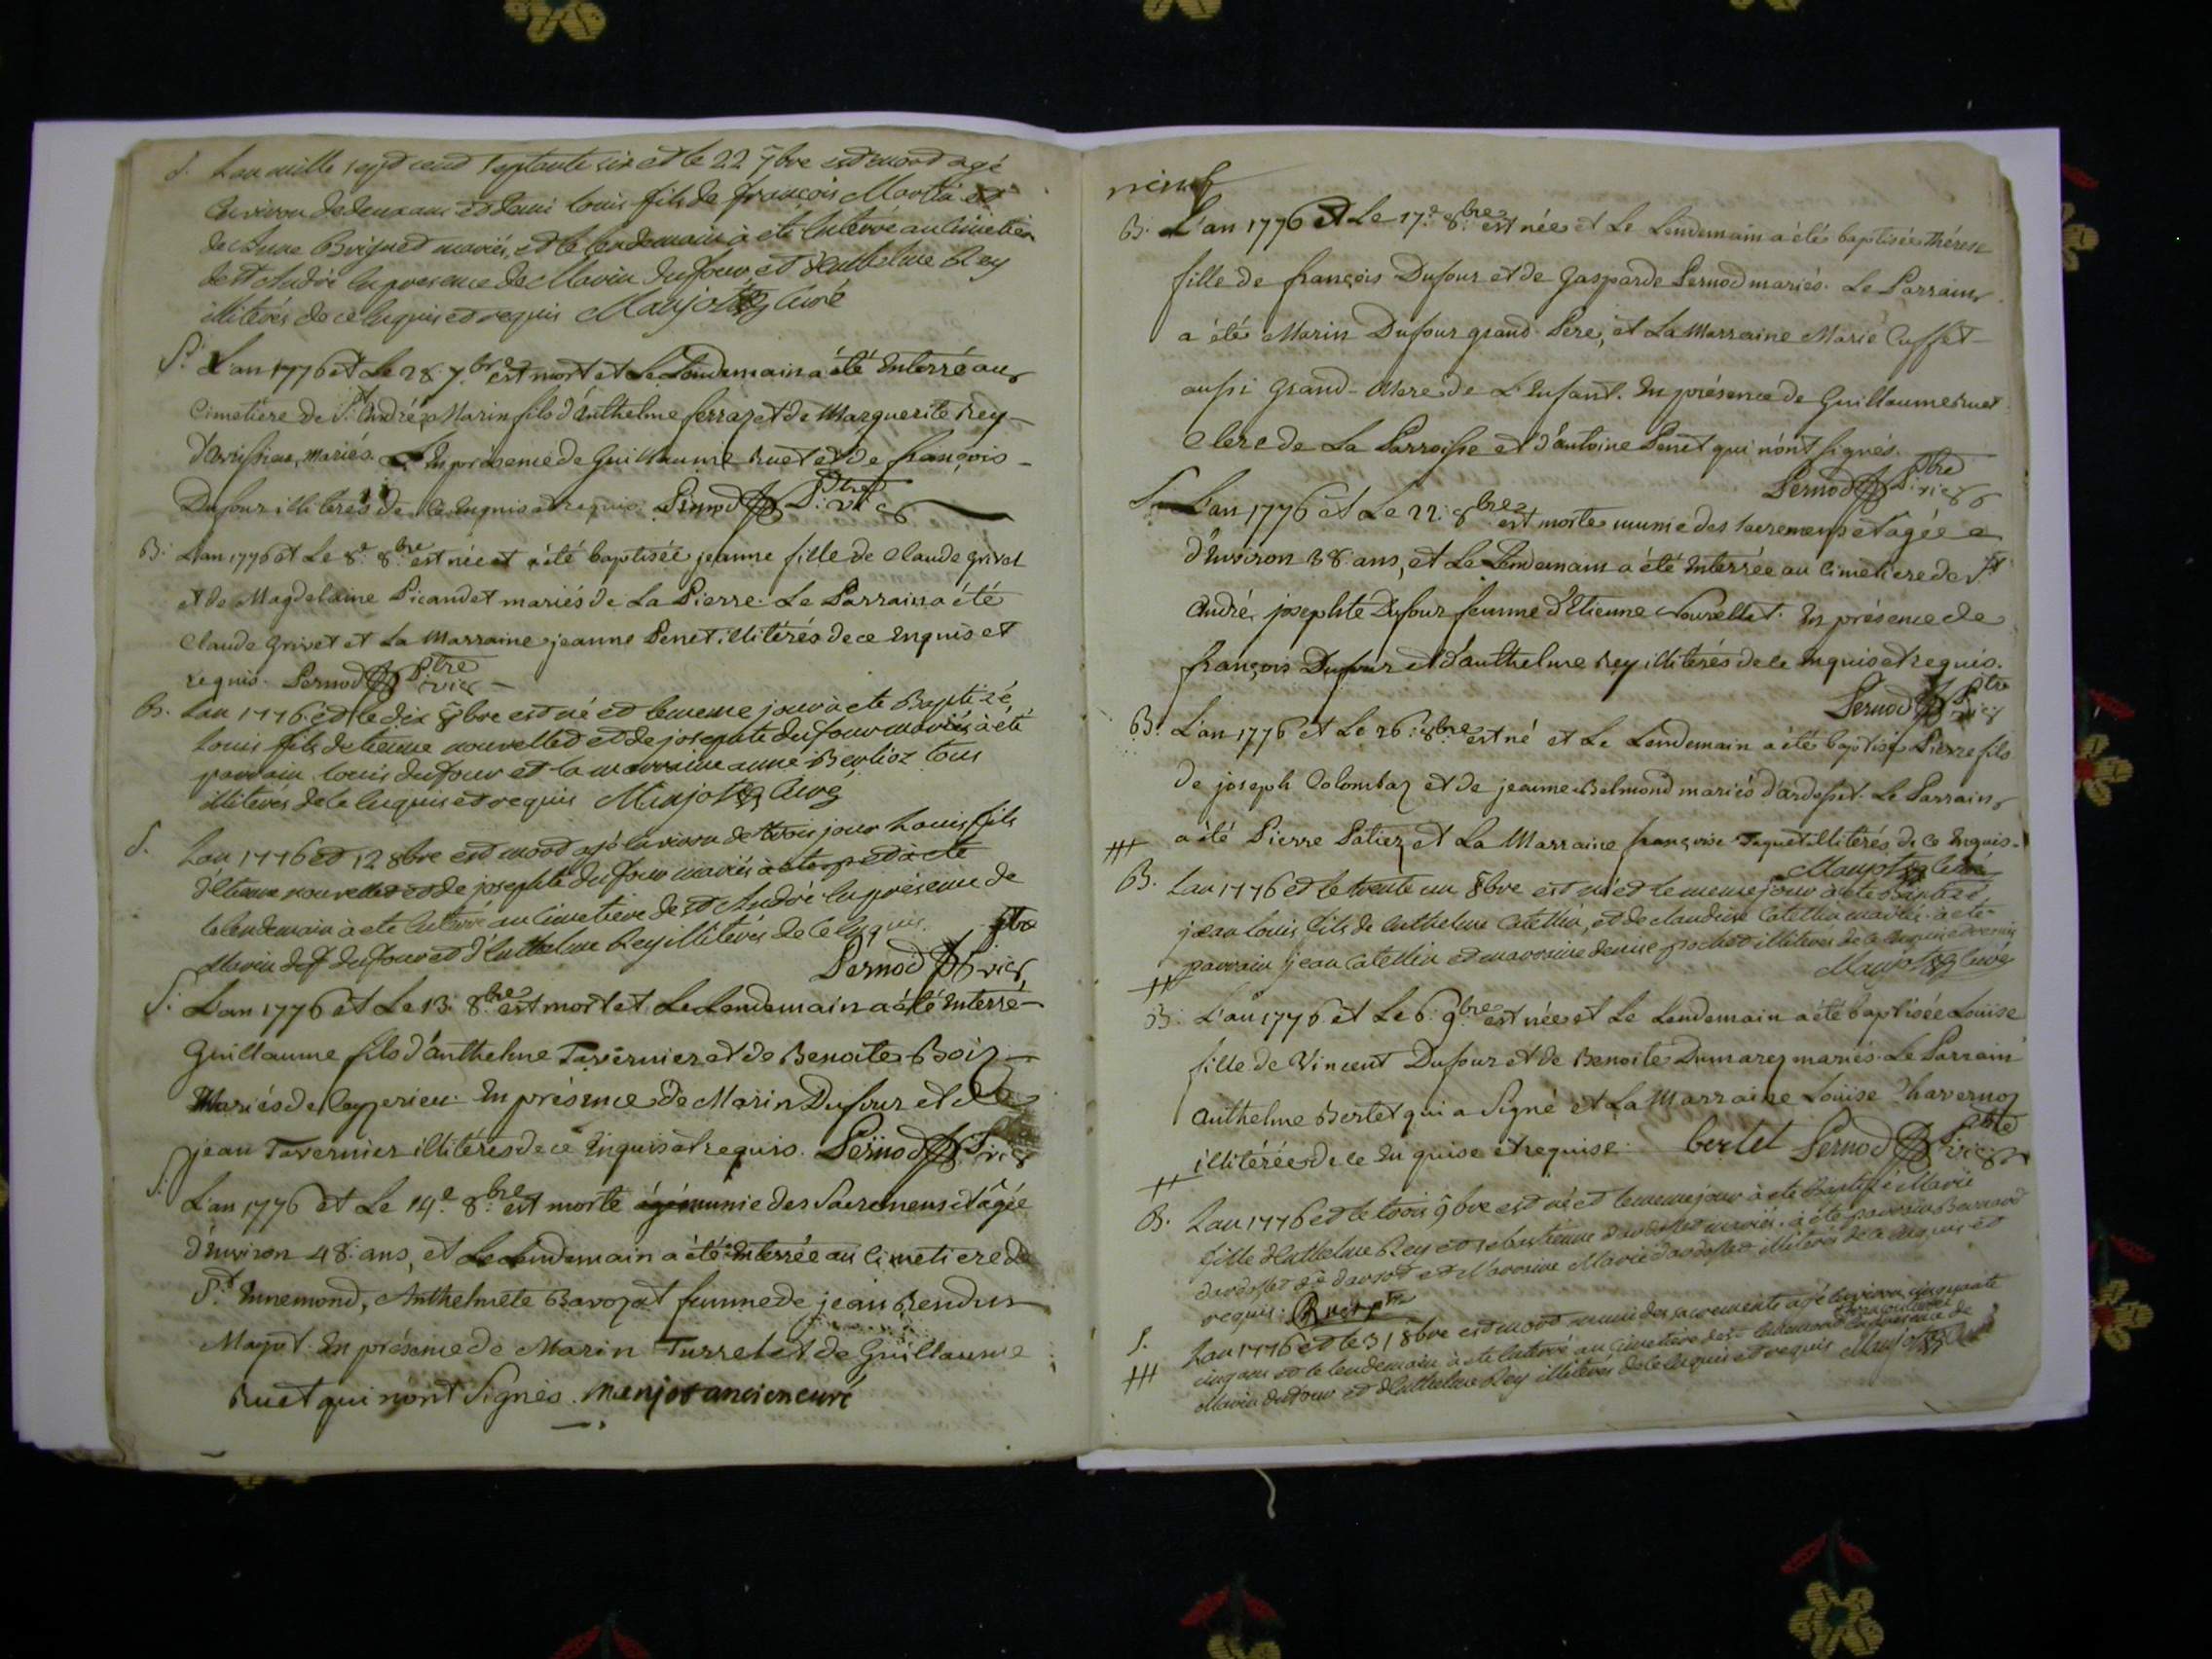 S. L'an mille sept cent septante six et le 22 7bre est mort agé
environ de deux ans et demi louis fils de françois Martin et
de Anne Brignet mariés, et le lendemain à eté enterré au Cimetiere
de St André en presence de Marin dufour et d'enthelme Rey
illiterés de ce enquis et requis Manjot Curé
S. L'an 1776 et Le 28. 7.bre est mort et Le Lendemain a été Enterré au
Cimetiere de St. André Marin fils d'Anthelme ferraz et de Marguerite Rey
mariés. En présence de Guillaume Ruet et de françois
Dufour illiterés de Ce Enquis et requis. Pernod Ptre vic
B. L'an 1776 et Le 8e 8.bre est née et a été baptisée jeanne fille de Claude Grivet
et de Magdelaine Picandet mariés de La Pierre. Le Parrain a été
Claude Grivet et La Marraine jeanne Penet. illitérés de ce Enquis et
requis. Pernod Ptre vic
B. L'an 1776. et le dix 8bre est né et le meme jour à eté Baptizé
Louis fils d'etienne nouvellet et de josephte dufour mariés à eté
parrain louis dufour et la marraine anne Berlioz tous
illiterés de ce enquis et requis Manjot Curé
S. L'an 1776 et 12 8bre est mort agé environ de trois jour Louis fils
d'Etienne nouvellet et de josephte dufour mariés et
le lendemain à eté enterré au Cimetiere de St André en présence de
Marin dufour et d'Enthelme Rey illiterés de ce enquis. Ptre
Pernod vic
S. L'an 1776 et Le 13. 8.bre est mort et Le Lendemain a été Enterré
Guillaume fils d'anthelme Tavernier et de Benoite Boiz
Mariés de Ceyzerieu. En présence de Marin Dufour et de
jean Tavernier illitérés de ce Enquis et requis. Pernod Ptre vic
S. L'an 1776 et Le 14.e 8.bre est morte munie des Sacremens et âgée
d'Environ 48. ans, et Le Lendemain a été Enterrée au Cimetiere de
St. Ennemond, Anthelmete Bavozat femme de jean Rendu
Mayot. En présence de Marin Turrel et de Guillaume
Ruet qui n'ont Signés. menjot ancien curé
neuf
B. L'an 1776 et Le 17.e 8.bre est née et Le Lendemain a été baptisée Thérese
fille de françois Dufour et de Gasparde Pernod mariés. Le Parrain
a été Marin Dufour grand-Pere, et La Marraine Marie Cusset
aussi Grand-Mere de L'Enfant. En présence de Guillaume Ruet
Clerc de La Parroisse et d'antoine Penet qui n'ont signés.
Pernod Ptre vic
S. L'an 1776 et Le 22. 8bre est morte munie des Sacremens et agée
d'Environ 38. ans, et Le Lendemain a été Enterrée au Cimetiere de St
André, josephte Dufour femme d'Etienne Nouvellet. En présence de
françois Dufour et d'anthelme Rey illitérés de ce Enquis et requis.
Pernod Ptre vic
B. L'an 1776 et Le 26. 8bre est né et Le Lendemain a été baptisé Pierre fils
de joseph Colombaz et de jeanne Belmond mariés d'ardosset. Le Parrain
a été Pierre Patier et La Marraine françoise Taquet illitérés de Ce Enquis.
Manjot Curé
B. L'an 1776 et le trente un 8bre est né et le meme jour à eté Baptisé
jean louis fils de Enthelme Catellin, et de claudine Catellin mariés. à eté
parrain jean Catellin et marraine denise pochet illiterés de ce enquis et requis
Manjot Curé
B. L'an 1776. et Le 6. 9bre est née et Le Lendemain a été baptisée Louise
fille de Vincent Dufour et de Benoite Dumarez mariés. Le Parrain
Anthelme Bertet qui a Signé et La Marraine Louise Chavernoz
illitérée de ce Enquise et requise. bertet Pernod Ptre vic
B. L'an 1776 et le trois 9bre est né et le meme jour à eté Baptisée Marie
fille d'Enthelme Rey et sébastienne dardosset mariés. à eté parrain Bernard
dardosset et Marraine Marie dardosset illiterés de ce enquis et
requis: Ruet
S. L'an 1776 et le 31 8bre est mort muni des sacrements agé environ cinquante
cinq ans et le lendemain à eté enterré au Cimetiere de St Ennemond en presence de
Marin dufour et d'Enthelme Rey illiterés de ce enquis et requis Manjot Curé